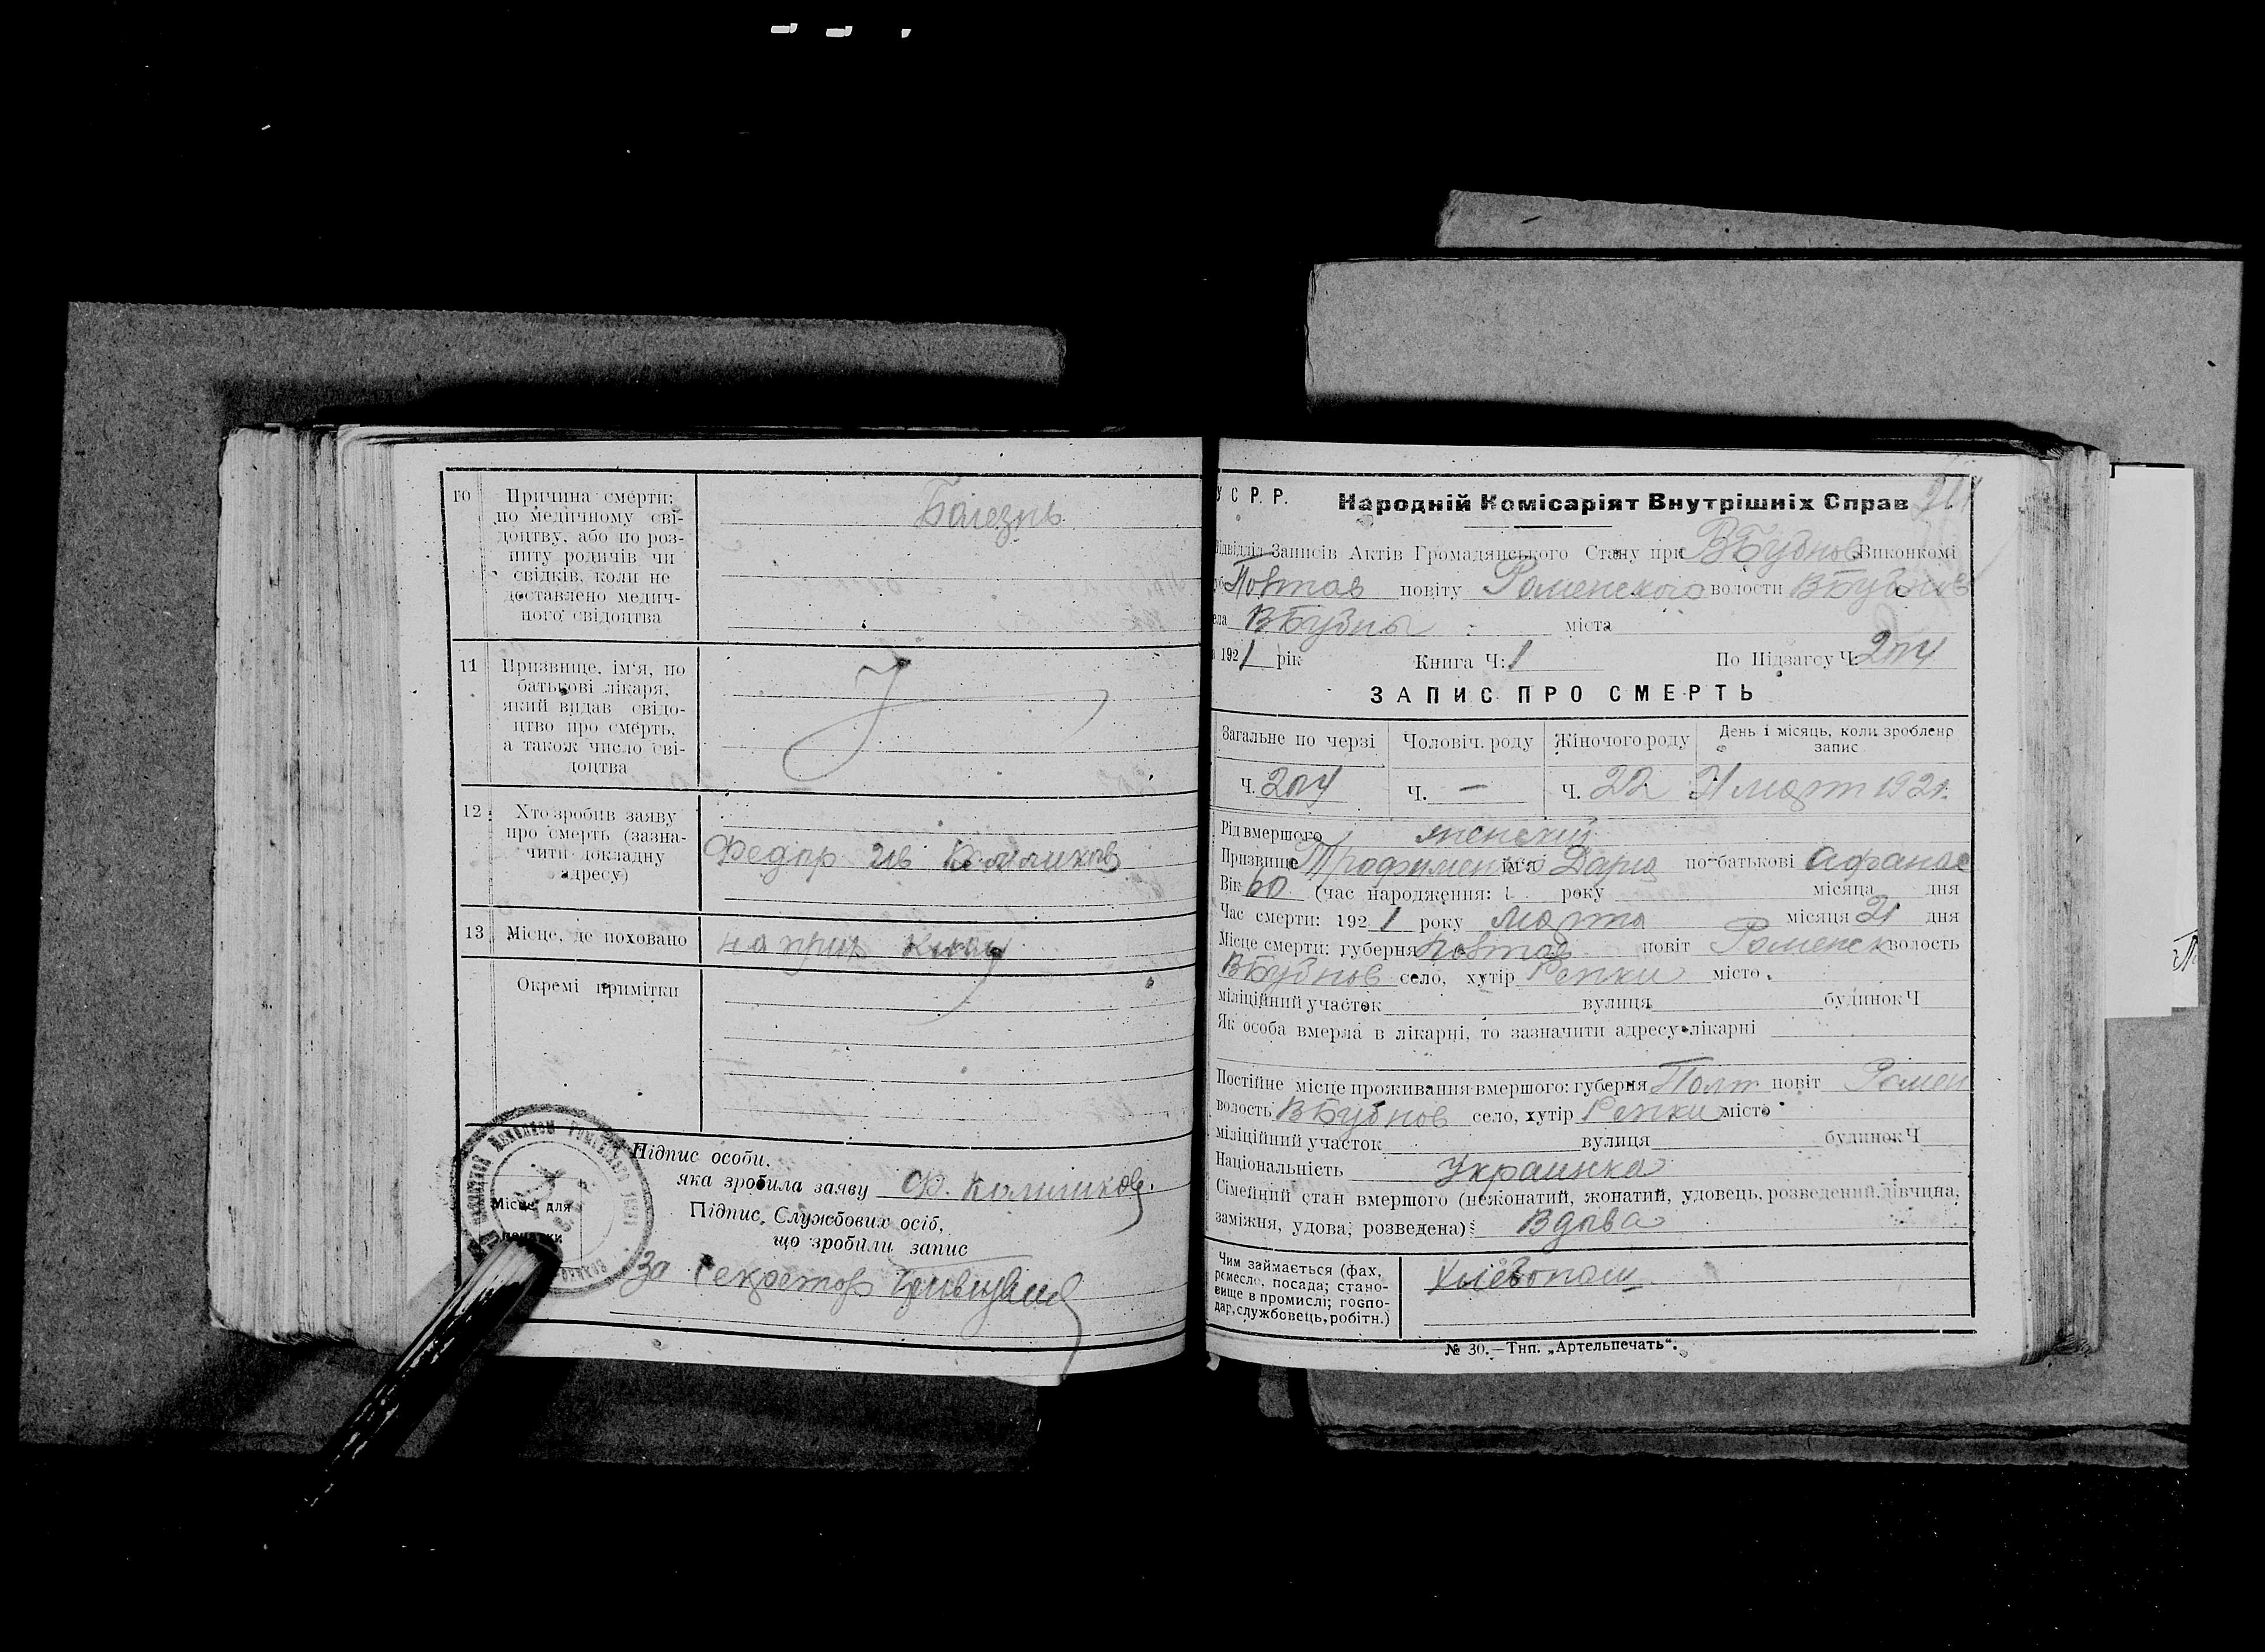 10 Причина смерти:
по медичному сві-
доцтву, або по роз-
питу родичів чи
свідків, коли не
доставлено медич-
ного свідоцтва
Болезнь
11 Призвище, ім'я, по
батькові лікаря,
який видав свідо-
цтво про смерть,
а також число сві-
доцтва
12 Хто зробив заяву
про смерть (зазна-
чити докладну
адресу)
Федор Ив
13 Місце, де поховано
на прих клад
Окремі примітки
Підпис особи,
яка зробила заяву Ф.
Підпис, Службових осіб,
що зробили запис
Місце для
За секретар
У С Р. Р. Народній Комісаріят Внутрішніх Справ
Підвідділ Записів Актів Громадянського Стану при ВБубнов Виконкомі
Полтав повіту Роменского волости ВБубнов
села ВБубны міста
1921 рік Книга Ч: 1 По Підзагсу Ч: 204
ЗАПИС ПРО СМЕРТЬ
Загальне по черзі Чоловіч. роду Жіночого роду День і місяць, коли зроблено
запис
Ч. 204 Ч. — Ч. 22 21 март 1921
Рід вмершого женский
Призвище Трофименко ім'я Дария по-батькові Афанас
Вік 60 (час народження: 1 року місяця дня
Час смерти: 1921 року марта місяця 21 дня
Місце смерти: губерня Полтав повіт Роменск волость
ВБубнов село, хутір Репки місто
міліційний участок вулиця будинок Ч
Як особа вмерла в лікарні, то зазначити адресу лікарні
Постійне місце проживання вмершого: губерня Полт повіт Ромен
волость ВБубнов село, хутір Репки місто
міліційний участок вулиця будинок Ч
Національність Украинка
Сімейний стан вмершого (нежонатий, жонатий, удовець, розведений, дівчина,
заміжня, удова, розведена): Вдова
Чим займається (фах,
ремесло, посада; стано-
вище в промислі; госпо-
дар, службовець, робітн.)
Хлебопаш
№ 30.—Тип. „Артельпечать“.